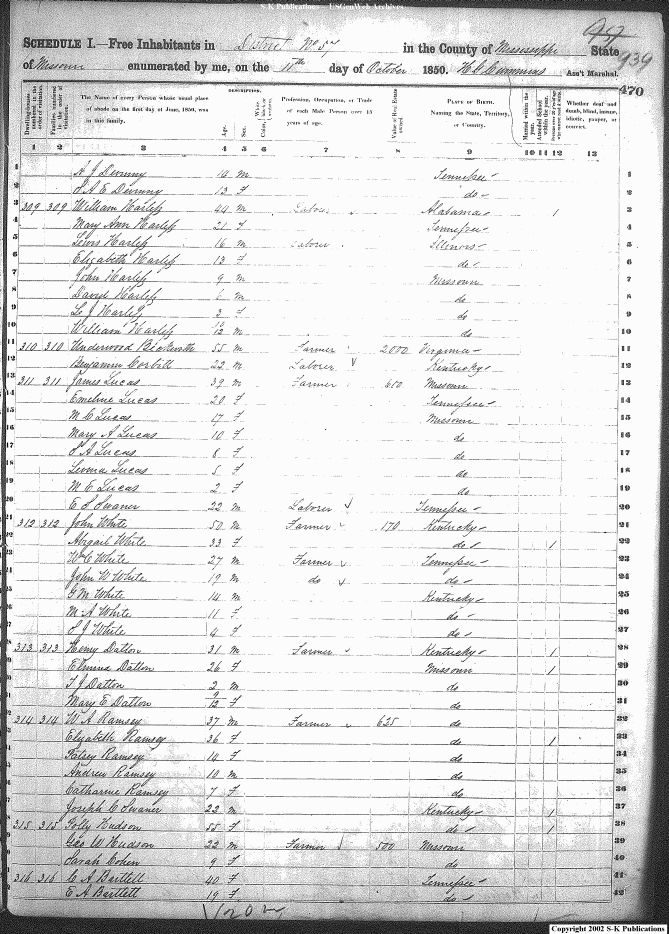 S-K Publications - USGenWeb Archives
SCHEDULE I.—Free Inhabitants in District No 57 in the County of Mississippi State
of Missouri enumerated by me, on the 11th day of October 1850. Ass't Marshal.
939
470
Dwelling-houses numbered in the order of visitation.
Families numbered in the order of visitation.
The Name of every Person whose usual place of abode on the first day of June, 1850, was in this family.
DESCRIPTION.
Age.
Sex.
Profession, Occupation, or Trade of each Male Person over 15 years of age.
Value of Real Estate owned.
PLACE OF BIRTH.
Naming the State, Territory, or Country.
Married within the year.
Attended School within the year.
Whether deaf and dumb, blind, insane, idiotic, pauper, or convict.
1 2 3 4 5 6 7 8 9 10 11 12 13
1 A J 14 m Tennessee 1
2 S A E 13 F do 2
3 309 309 William Harless 44 m Laborer Alabama 1 3
4 Mary Ann Harless 21 F Tennessee 4
5 Lewis Harless 16 m Laborer Illinois 5
6 Elizabeth Harless 13 F do 6
7 John Harless 9 m Missouri 7
8 David Harless 6 m do 8
9 L J Harless 3 F do 9
10 William Harless 10/12 m do 10
11 310 310 Underwood Beckwith 55 m Farmer 2000 Virginia 11
12 Benjamin Corbitt 22 m Laborer Kentucky 12
13 311 311 James Lucas 39 m Farmer 600 Missouri 13
14 Emeline Lucas 20 F Tennessee 14
15 M C Lucas 17 F Missouri 15
16 Mary A Lucas 10 F do 16
17 S A Lucas 8 F do 17
18 Lucas 5 F do 18
19 M E Lucas 2 F do 19
20 E S Swaner 22 m Laborer Tennessee 20
21 312 312 John White 50 m Farmer 170 Kentucky 21
22 Abigail White 33 F do 1 22
23 W C White 27 m Farmer Tennessee 23
24 John W White 19 m do do 24
25 G M White 14 m Kentucky 25
26 M A White 11 F do 26
27 S J White 4 F do 27
28 313 313 Henry Dalton 31 m Farmer Kentucky 1 28
29 Elmina Dalton 26 F Missouri 1 29
30 T J Dalton 2 m do 30
31 Mary E Dalton 9/12 F do 31
32 314 314 W A Ramsey 37 m Farmer 625 do 32
33 Elizabeth Ramsey 36 F do 1 33
34 Ramsey 14 F do 34
35 Andrew Ramsey 10 m do 35
36 Catharine Ramsey 7 F do 36
37 Joseph C Swaner 23 m Kentucky 1 37
38 315 315 Polly Hudson 55 F do 1 38
39 Geo W Hudson 22 m Farmer 500 Missouri 39
40 Sarah Cohen 9 F do 40
41 316 316 C A Bartlett 40 F Tennessee 41
42 E A Bartlett 19 F do 42
Copyright 2002 S-K Publications